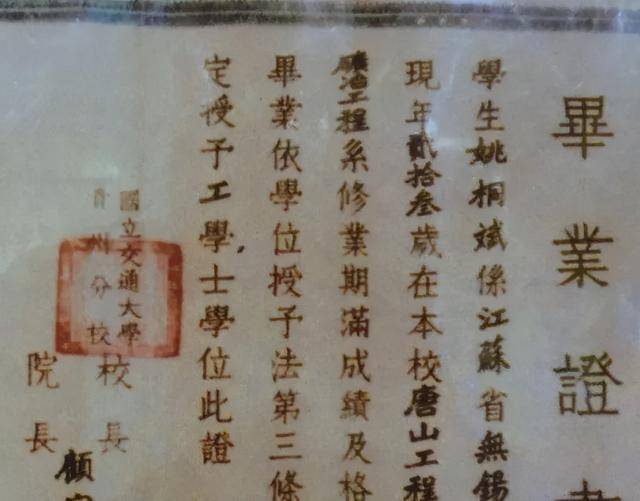 畢業證
學生姚桐斌係江蘇省無錫
現年貳拾叁歲在本校唐山工程
礦冶工程系修業期滿成績及格
畢業依學位授予法第三條
定授予工學士學位此證
國立交通大學
貴州分校
校長
院長
顧